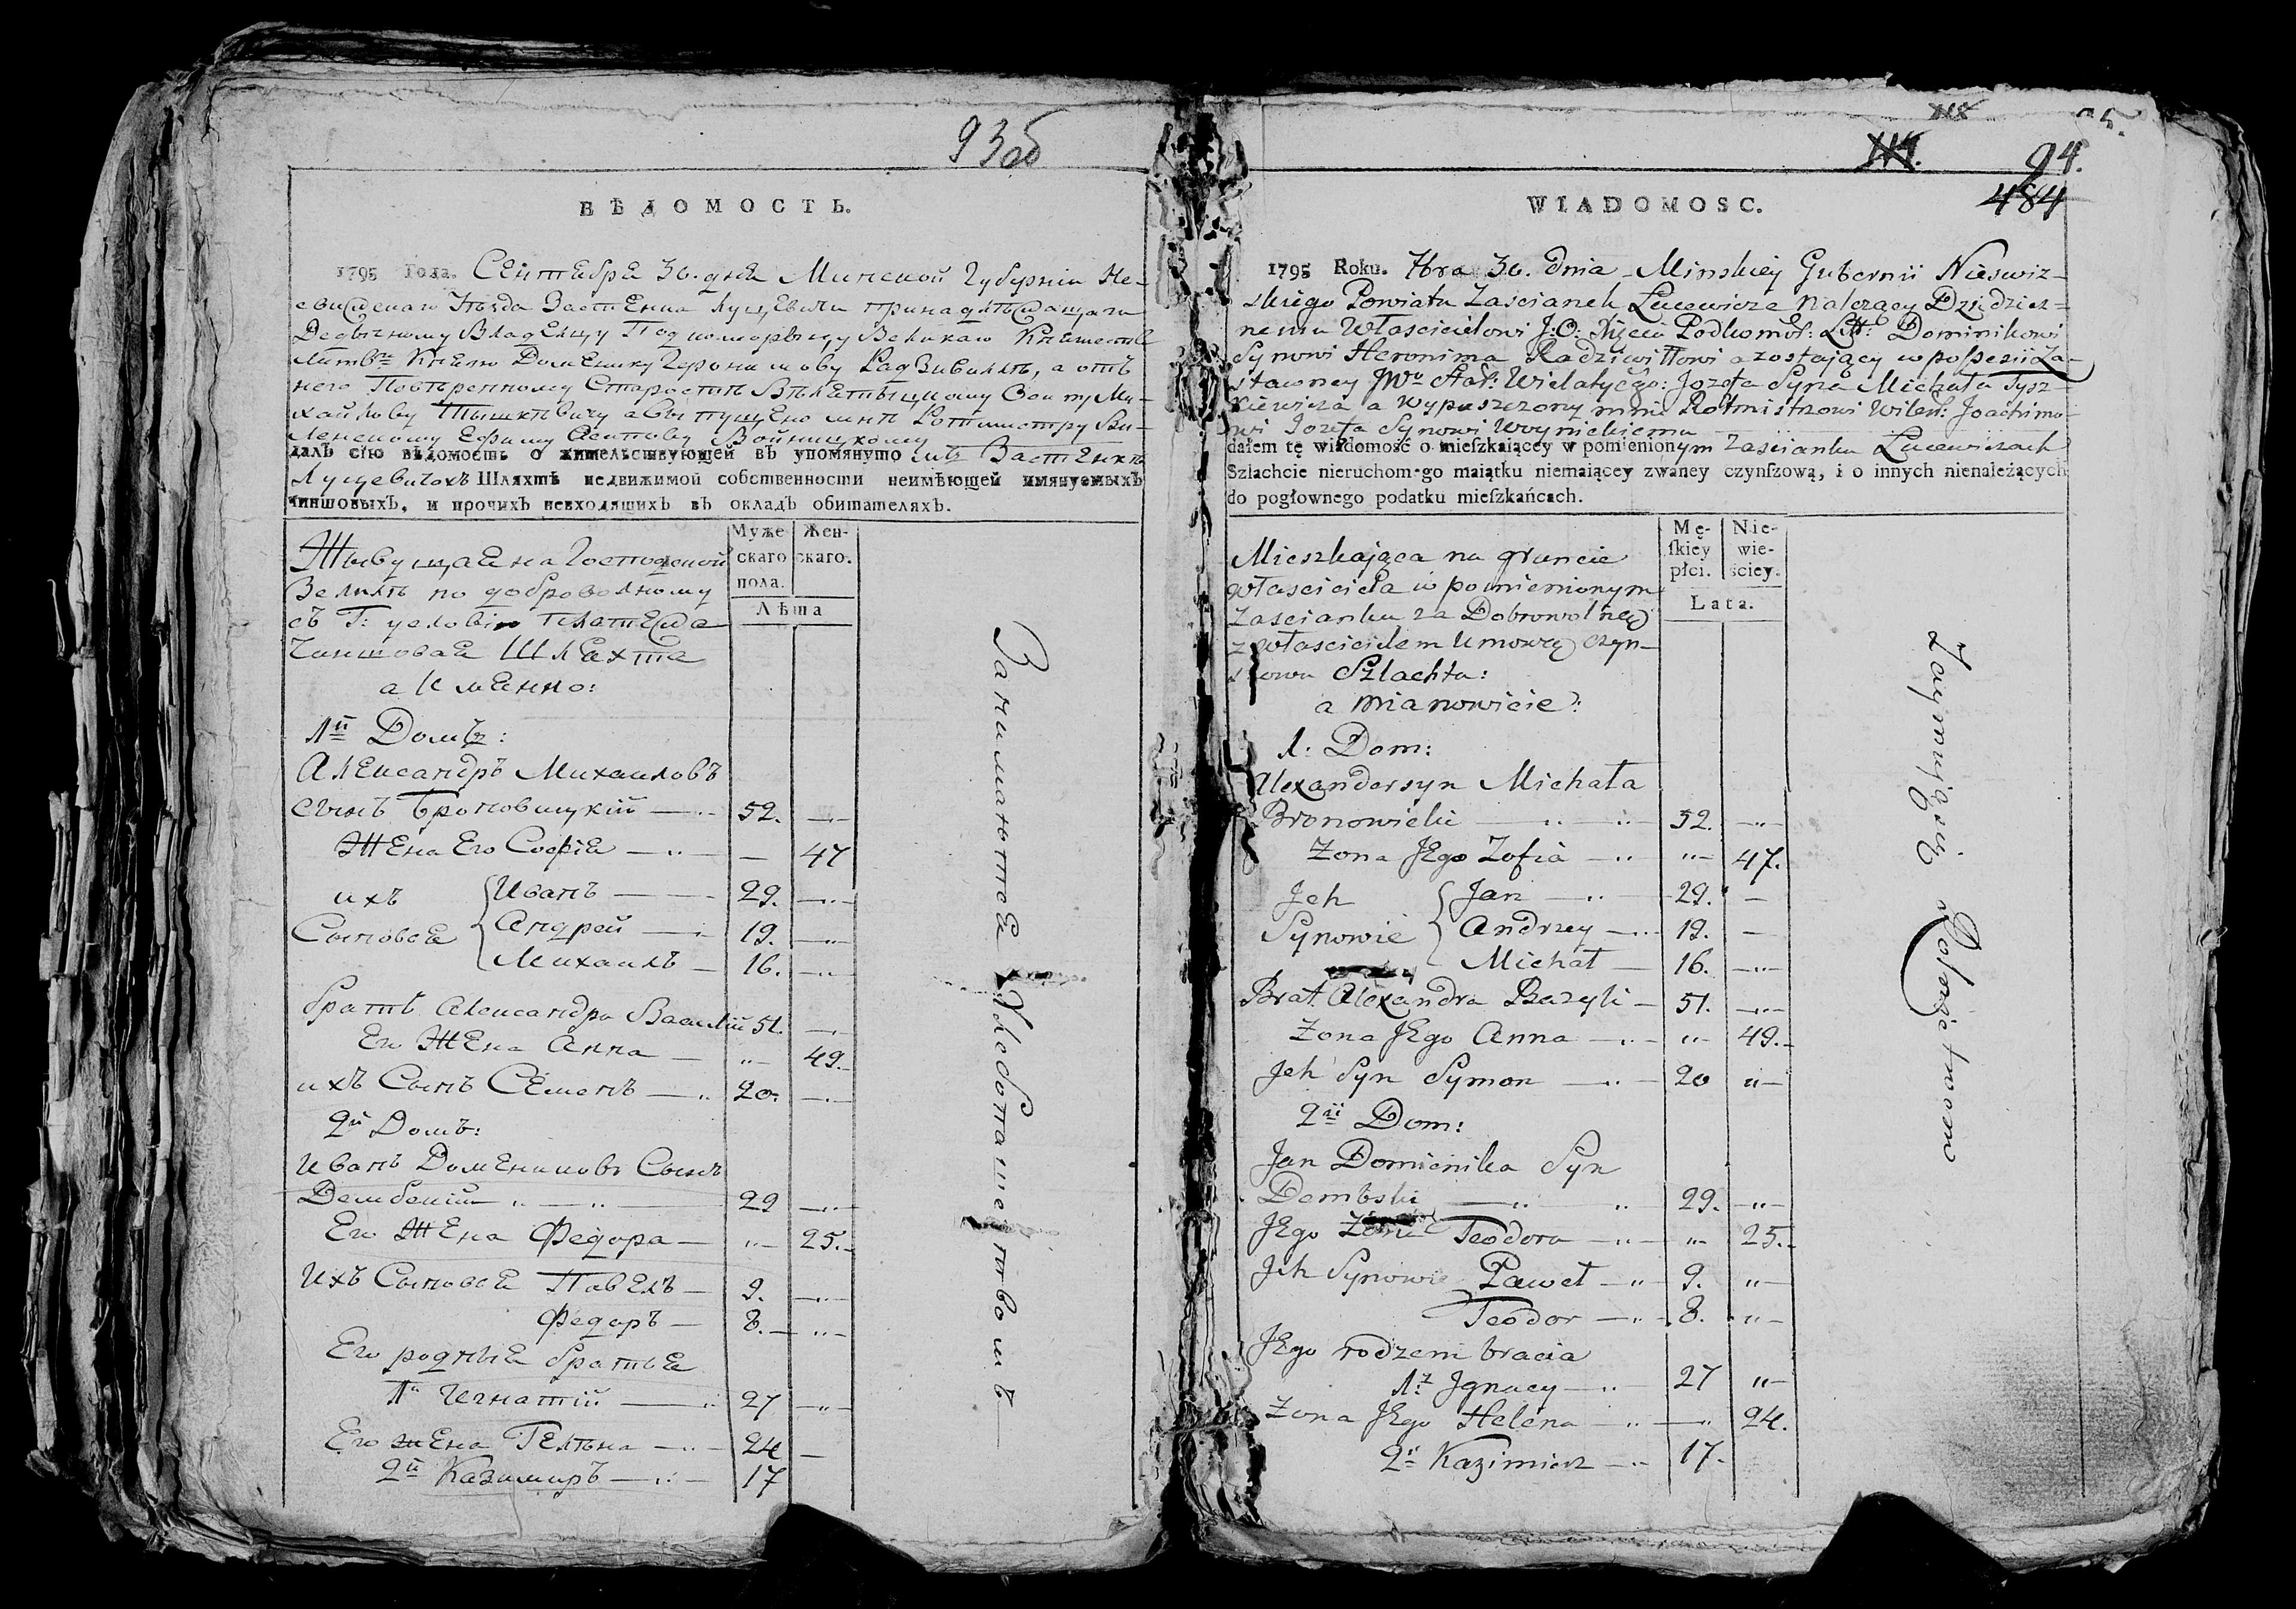 93об
ВѢДОМОСТЬ.
1795 Года. Сентебре 30. дня Минской Губернiи Не-
свижскаго Уѣзда Застенка Луцевичи принадлѣжащаго
Дедычному Владельцу Подкоморыму Великаго Княжества
Литвго Князю Доменику Геронимову Радзивиллѣ, а отъ
него Повѣренному Старостѣ Вѣлятыцкому Ми-
хайлову Тышкѣвичу а выпущено мнѣ Ротмистру Ви-
ленскому Ефиму Асипову Войницкому
далъ сiю вѣдомость о жительствующей въ упомянуто мъ Застенкѣ
Луцевичохъ Шляхтѣ недвижимой собственности неимѣющей имянуемыхъ
чиншовыхъ, и прочихъ невходящихъ въ окладъ обитателяхъ.
Муже Жен-
скаго скаго.
пола.
Лѣта
Жывущая на Господской
Землѣ по доброволному
съ Г: условiю платежа
Чиншовая Шляхта
а Именно:
1й Домъ:
Александръ Михаиловъ
сынъ Броновицкiй 52.
Жена Его Софiя 47
ихъ Иванъ 29.
Сыновья Андрей 19.
Михаилъ 16.
братъ Александра Василiй 51.
Его Жена Анна 49.
ихъ Сынъ Семенъ 20.
2й Домъ:
Иванъ Домениковъ Сынъ
Дембскiй 29
Его Жена Федора 25.
Ихъ Сыновья Павелъ 9.
Федоръ 8.
Его родныя братья
1й Игнатiй 27
Его жена Гелѣна 24
2й Казимиръ 17
Занимаютпся Хлебопашествомъ
94.
484
WIADOMOSC.
1795 Roku. 7bra 30. dnia Minskiey Gubernii Nieswiz-
skiego Powiatu Zascianek Lucewicze Nalezący Dziedzicz-
nemu Włascicielowi J:O: Xięciu Podkomor: Litt: Dominikowi
Synowi Heronima Radziwiłłowi a zostający w possesii Za-
stawney JWo Star: Wielatyckgo: Jozefa Syna Michała Tysz-
kiewicza a wypuszczony mnie Rotmistrzowi Wilen: Joachimo-
wi Jozefa Synowi Woynickiemu
dałem tę wiadomość o mieſzkaiącey w pomienionym Zascianku Lucewiczach
Szlachcie nieruchomego maiątku niemaiącey zwaney czynſzową, i o innych nienależących
do pogłownego podatku mieſzkańcach.
Mę- Nie-
ſkiey wie-
płci. ściey.
Lata.
Mieszkająca na gruncie
własciciela w pomienionym
Zascianku za Dobrowolną
z włascicielem Umową czyn-
szowa Szlachta:
a mianowicie:
1: Dom:
Alexander syn Michała
Bronowicki 52.
Zona JEgo Zofia 47.
Jch Jan 29.
Synowie Andrzey 19.
Michał 16.
Brat Alexandra Bazyli 51.
Zona JEgo Anna 49.
Jch Syn Symon 20
2ii Dom:
Jan Dominika Syn
Dembski 29.
JEgo Zona Teodora 25.
Jch Synowie Paweł 9.
Teodor 8.
JEgo rodzeni bracia
1: Jgnacy 27
Zona JEgo Helena 24.
2ii Kazimierz 17.
Zaymuią się Rolnictwem